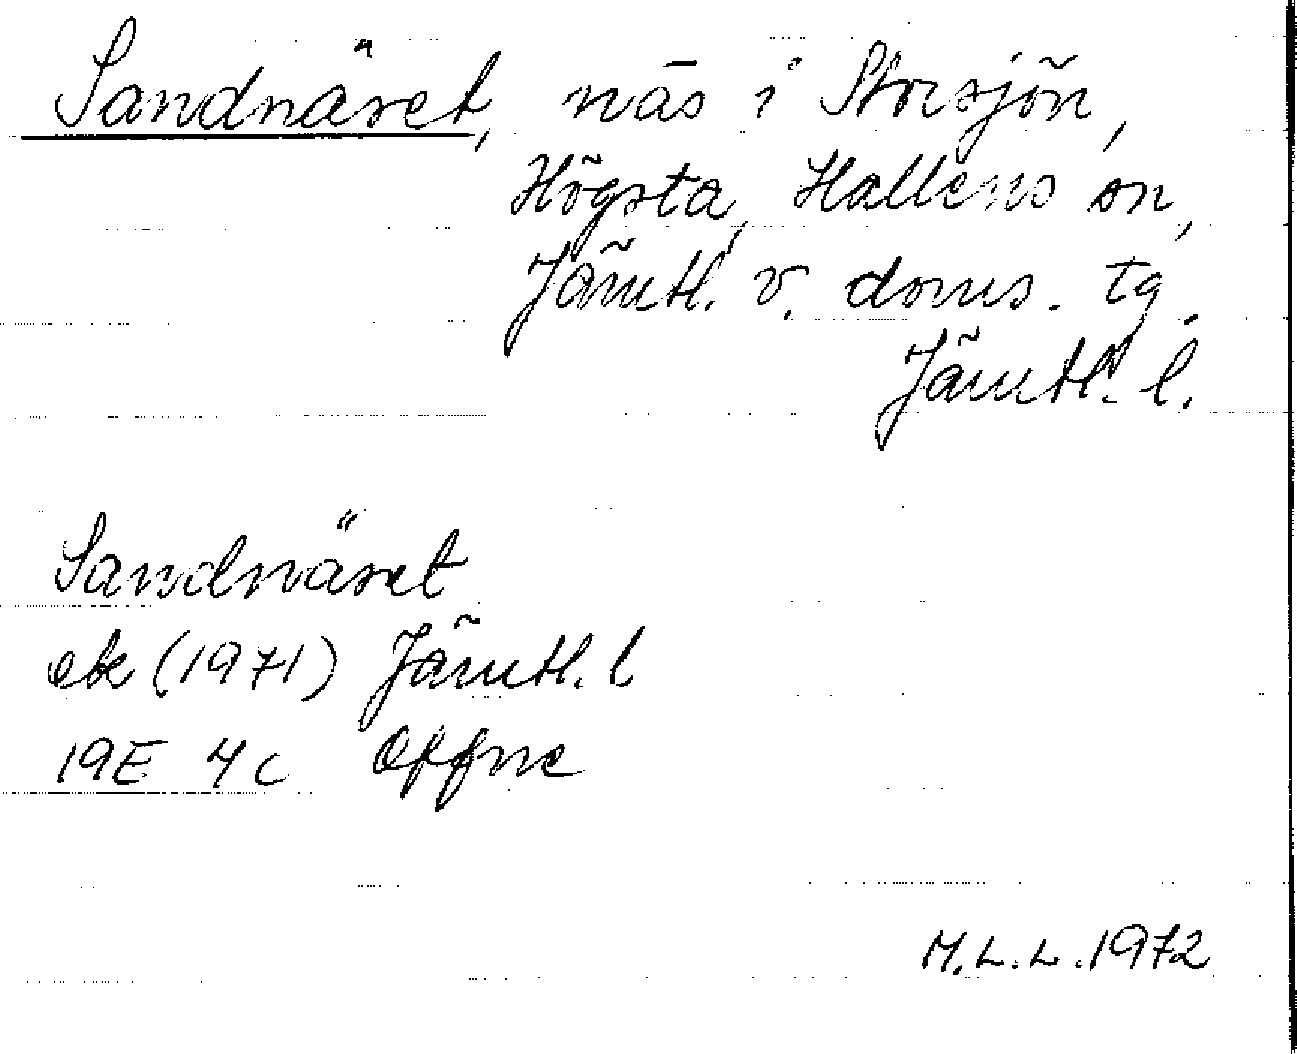 Sandnäset, näs i Storsjön,
Högsta, Hallens sn,
Jämtl. v. doms. tg.
Jämtl. l.
Sandnäset
ek (1971) Jämtl. l
19E 4c Offne
M.L.L. 1972